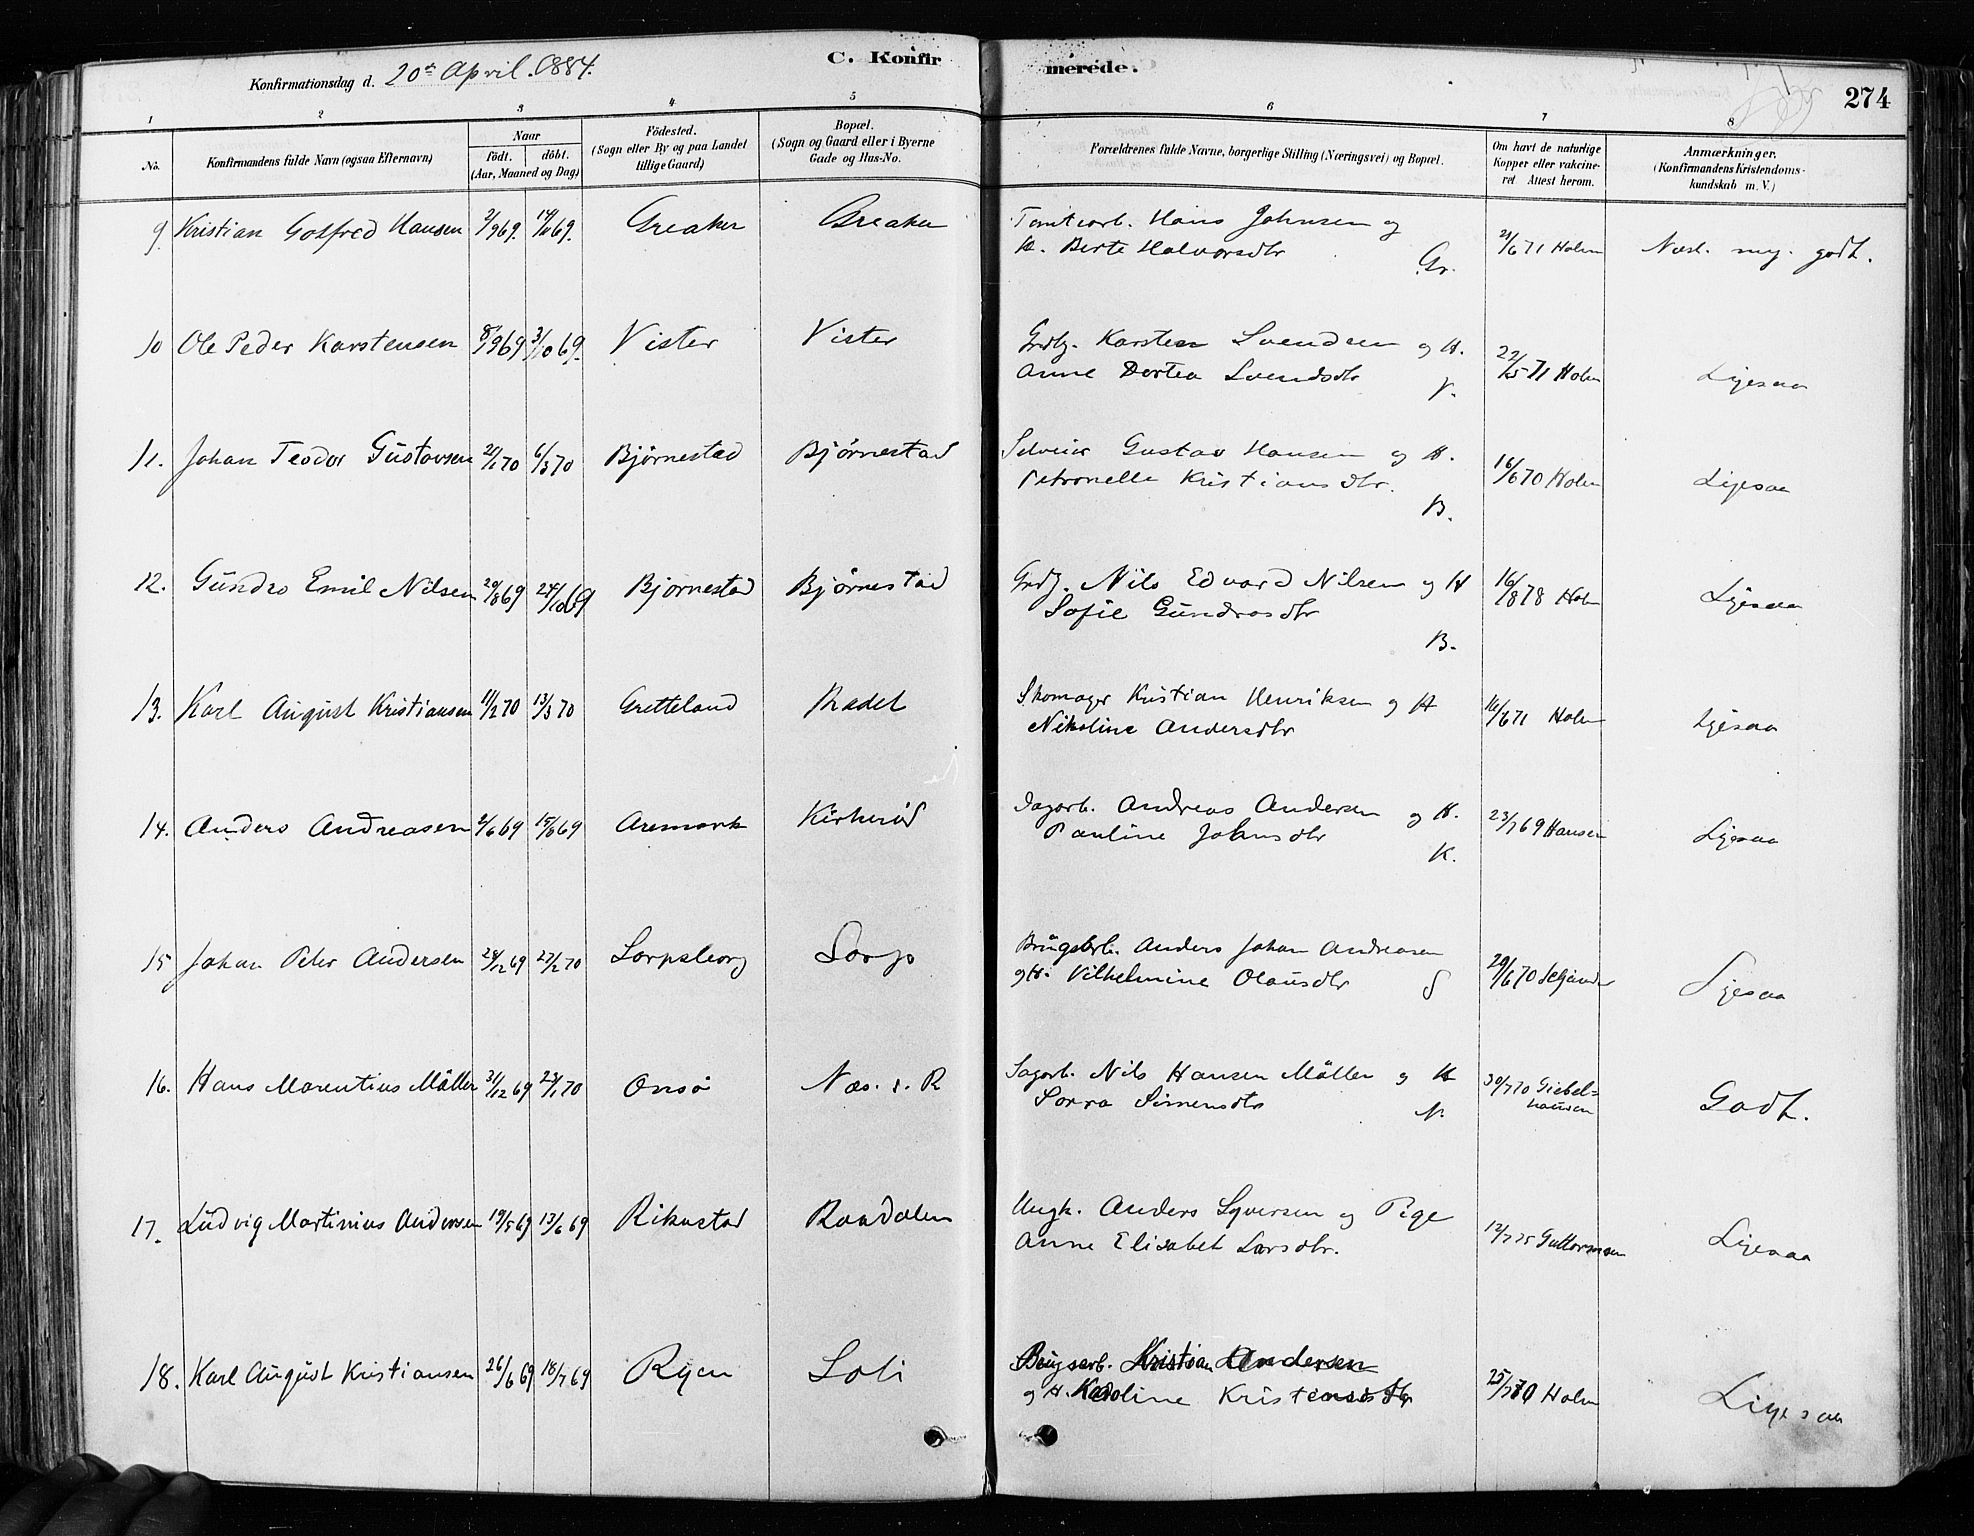 Konfirmationsdag d. 20de April 1884.
C. Konfirmerede.
274
1 2 3 4 5 6 7 8
No.
Konfirmandens fulde Navn (ogsaa Efternavn)
Naar
födt. döbt.
(Aar, Maaned og Dag)
Födested.
(Sogn eller By og paa Landet
tillige Gaard)
Bopæl.
(Sogn og Gaard eller i Byerne
Gade og Hus-No.
Forældrenes fulde Navne, borgerlige Stilling (Næringsvei) og Bopæl.
Om havt de naturlige
Kopper eller vakcine-
ret Attest herom.
Anmærkninger.
(Konfirmandens Kristendoms-
kundskab m. V.)
9 Kristian Gotfred Hansen 2/9 69. 14/11 69. Greaker Greaker
Tomtearb. Hans Johnsen og
H. Berte Halvorsdtr Gr.
21/6 71 Holm
Næst. meg. godt.
10 Ole Peder Karstensen 8/9 69 3/10 69. Vister Vister
Grdbr. Karsten Svendsen og H.
Anne Dortea Svendsdtr V.
22/5 71 Holm
Ligesaa
11. Johan Teodor Gustavsen 2/1 70 6/3 70 Bjørnestad Bjørnestad
Selveier Gustav Hansen og H.
Petronelle Kristiansdtr. B.
16/6 70 Holm
Ligesaa
12. Gundro Emil Nilsen 29/8 69 24/10 69 Bjørnestad Bjørnestad
Grdbr. Nils Edvard Nilsen og H
Sofie Gundrosdtr
B.
16/8 78 Holm
Ligesaa
13. Karl August Kristiansen 11/2 70 13/3 70 Gretteland Rædet
Skomager Kristian Henriksen og H
Nikoline Andersdtr
16/6 71 Holm
Ligesaa
14. Anders Andreasen 2/6 69 15/8 69 Aremark Kirkerød
Dagarb. Andreas Andersen og H.
Pauline Johnsdtr
K.
23/7 69 Hansen
Ligesaa
15 Johan Peter Andersen 24/12 69 27/2 70 Sarpsborg Sarp
Brugsarb. Anders Johan Andreasen
og H. Vilhelmine Olausdtr S
29/6 70
Ligesaa
16. Hans Marentius Möller 31/12 69 23/1 70 Onsö Næs. i. R
Sagarb. Nils Hansen Möller og H
Simensdtr N.
30/7 70 Giebel=
hausen
Godt.
17. Ludvig Martinius Andersen 19/5 69 13/6 69 Rikastad Raadalen
Ungk. Anders Syversen og Pige
Anne Elisabet Larsdtr.
12/7 75 Guttormsen
Ligesaa
18. Karl August Kristiansen 26/6 69 18/7 69 Ryen Soli
Brugsarb. Kristian Andersen
og H. Karoline Kristensdtr
25/7 70 Holm
Ligesaa